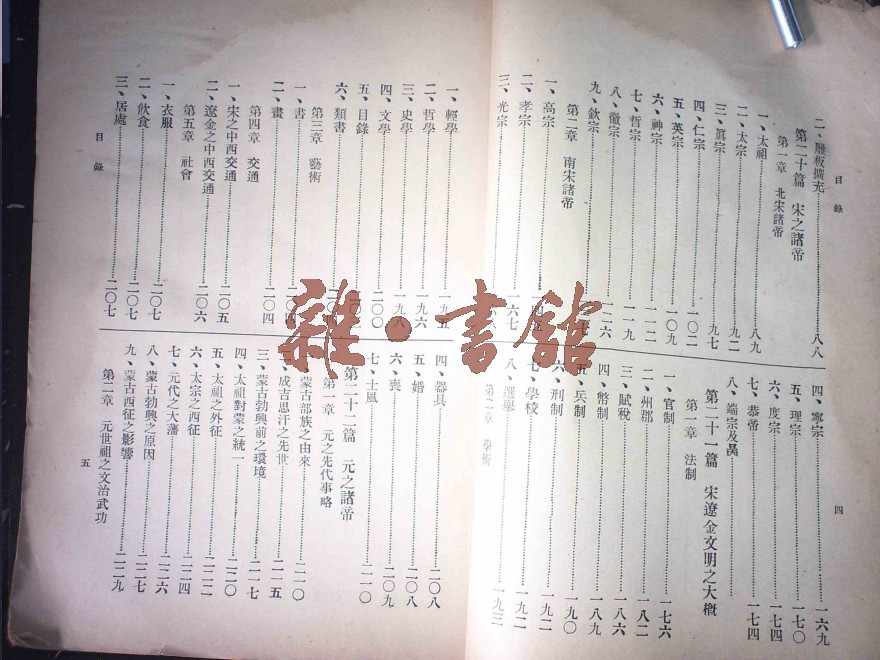 目錄
四
二、雕板擴充……八八
第二十篇 宋之諸帝
第一章 北宋諸帝
一、太祖……八九
二、太宗……九二
三、眞宗……九七
四、仁宗……一〇二
五、英宗……一〇九
六、神宗……一一二
七、哲宗……一一九
八、徽宗……一二六
九、欽宗
第二章 南宋諸帝
一、高宗
二、孝宗
三、光宗
四、寧宗……一六九
五、理宗……一七〇
六、度宗……一七四
七、恭帝……一七四
八、端宗及昺
第二十一篇 宋遼金文明之大槪
第一章 法制
一、官制……一七六
二、州郡……一八二
三、賦稅……一八六
四、幣制……一八九
五、兵制……一九〇
六、刑制……一九二
七、學校……一九二
八、選舉……一九三
第二章 學術
一、經學……一九五
二、哲學……一九六
三、史學……一九八
四、文學……二〇〇
五、目錄
六、類書
第三章 藝術
一、書
二、畫……二〇四
第四章 交通
一、宋之中西交通……二〇五
二、遼金之中西交通……二〇六
第五章 社會
一、衣服……二〇七
二、飲食……二〇七
三、居處……二〇七
四、器具……二〇八
五、婚……二〇八
六、喪……二〇九
七、士風……二一〇
第二十二篇 元之諸帝
第一章 元之先代事略
一、蒙古部族之由來……二一〇
二、成吉思汗之先世……二一五
三、蒙古勃興前之環境……二一七
四、太祖對蒙之統一……二二〇
五、太祖之外征……二二二
六、太宗之西征……二二四
七、元代之大藩……二二六
八、蒙古勃興之原因……二二七
九、蒙古西征之影響……二二九
第二章 元世祖之文治武功
目錄
五
雜·書館